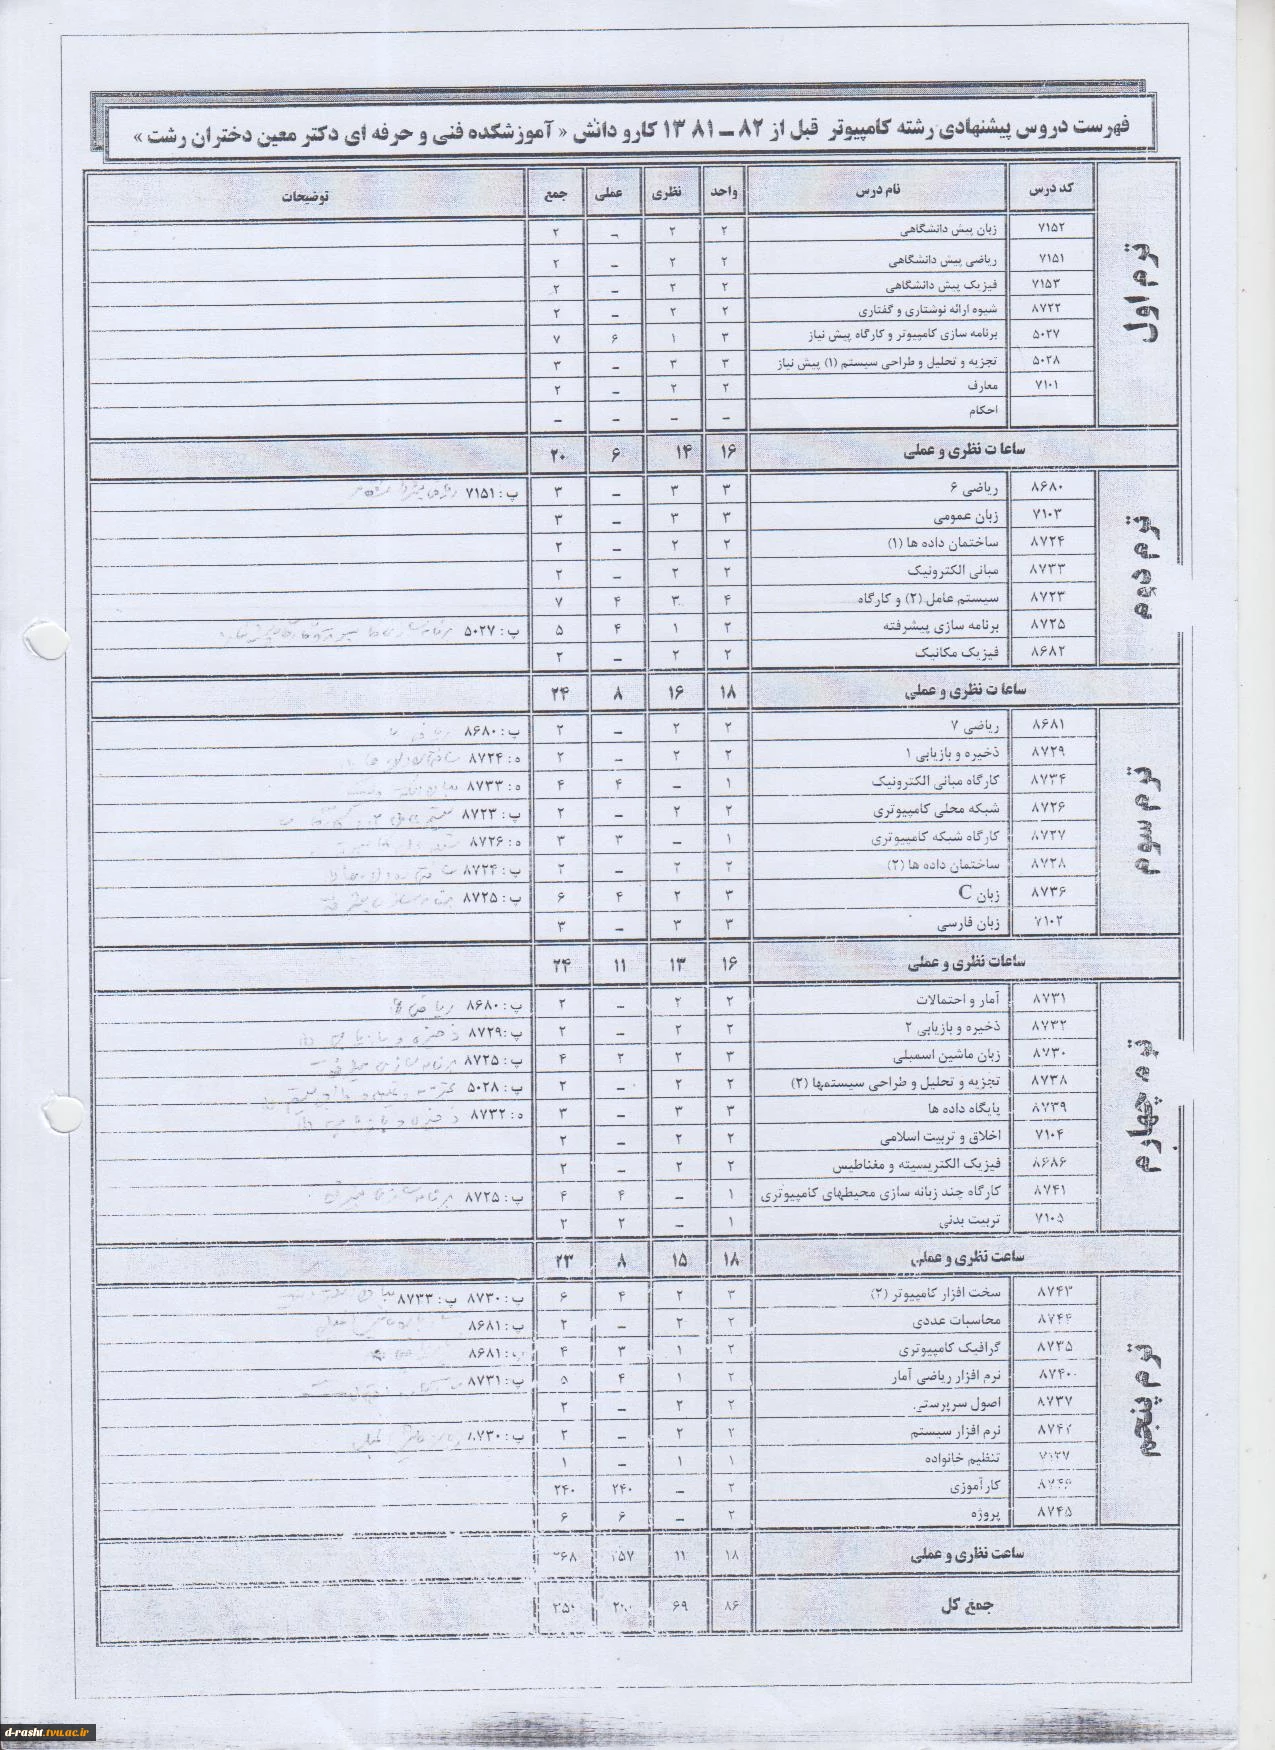 فهرست دروس پیشنهادی رشته کامپیوتر قبل از ۸۲ – ۱۳۸۱ کارو دانش « آموزشکده فنی و حرفه ای دکتر معین دختران رشت »
کد درس نام درس واحد نظری عملی جمع توضیحات
ترم اول
۷۱۵۲ زبان پیش دانشگاهی ۲ ۲ – ۲
۷۱۵۱ ریاضی پیش دانشگاهی ۲ ۲ – ۲
۷۱۵۳ فیزیک پیش دانشگاهی ۲ ۲ – ۲
۸۷۲۲ شیوه ارائه نوشتاری و گفتاری ۲ ۲ – ۲
۵۰۲۷ برنامه سازی کامپیوتر و کارگاه پیش نیاز ۳ ۱ ۶ ۷
۵۰۲۸ تجزیه و تحلیل و طراحی سیستم (۱) پیش نیاز ۳ ۳ – ۳
۷۱۰۱ معارف ۲ ۲ – ۲
احکام – – – –
ساعات نظری و عملی ۱۶ ۱۴ ۶ ۲۰
ترم دوم
۸۶۸۰ ریاضی ۶ ۳ ۳ – ۳ پ : ۷۱۵۱
۷۱۰۳ زبان عمومی ۳ ۳ – ۳
۸۷۲۴ ساختمان داده ها (۱) ۲ ۲ – ۲
۸۷۳۳ مبانی الکترونیک ۲ ۲ – ۲
۸۷۲۳ سیستم عامل (۲) و کارگاه ۴ ۳ ۴ ۷
۸۷۲۵ برنامه سازی پیشرفته ۲ ۱ ۴ ۵ پ : ۵۰۲۷
۸۶۸۲ فیزیک مکانیک ۲ ۲ – ۲
ساعات نظری و عملی ۱۸ ۱۶ ۸ ۲۴
ترم سوم
۸۶۸۱ ریاضی ۷ ۲ ۲ – ۲ پ : ۸۶۸۰
۸۷۲۹ ذخیره و بازیابی ۱ ۲ ۲ – ۲ ه : ۸۷۲۴
۸۷۳۴ کارگاه مبانی الکترونیک ۱ – ۴ ۴ ه : ۸۷۳۳
۸۷۲۶ شبکه محلی کامپیوتری ۲ ۲ – ۲ پ : ۸۷۲۳
۸۷۲۷ کارگاه شبکه کامپیوتری ۱ – ۳ ۳ ه : ۸۷۲۶
۸۷۲۸ ساختمان داده ها (۲) ۲ ۲ – ۲ پ : ۸۷۲۴
۸۷۳۶ زبان C ۳ ۲ ۴ ۶ پ : ۸۷۲۵
۷۱۰۲ زبان فارسی ۳ ۳ – ۳
ساعات نظری و عملی ۱۶ ۱۳ ۱۱ ۲۴
ترم چهارم
۸۷۳۱ آمار و احتمالات ۲ ۲ – ۲ پ : ۸۶۸۰
۸۷۳۲ ذخیره و بازیابی ۲ ۲ ۲ – ۲ پ : ۸۷۲۹
۸۷۳۰ زبان ماشین اسمبلی ۳ ۲ ۲ ۴ پ : ۸۷۲۵
۸۷۳۸ تجزیه و تحلیل و طراحی سیستمها (۲) ۲ ۲ – ۲ پ : ۵۰۲۸
۸۷۳۹ پایگاه داده ها ۳ ۳ – ۳ ه : ۸۷۳۲
۷۱۰۴ اخلاق و تربیت اسلامی ۲ ۲ – ۲
۸۶۸۶ فیزیک الکتریسیته و مغناطیس ۲ ۲ – ۲
۸۷۴۱ کارگاه چند زبانه سازی محیطهای کامپیوتری ۱ – ۴ ۴ پ : ۸۷۲۵
۷۱۰۵ تربیت بدنی ۱ – ۲ ۲
ساعت نظری و عملی ۱۸ ۱۵ ۸ ۲۳
ترم پنجم
۸۷۴۳ سخت افزار کامپیوتر (۲) ۳ ۲ ۴ ۶ پ : ۸۷۳۰ پ : ۸۷۳۳
۸۷۴۴ محاسبات عددی ۲ ۲ – ۲ پ : ۸۶۸۱
۸۷۳۵ گرافیک کامپیوتری ۲ ۱ ۳ ۴ پ : ۸۶۸۱
۸۷۴۰ نرم افزار ریاضی آمار ۲ ۱ ۴ ۵ پ : ۸۷۳۱
۸۷۳۷ اصول سرپرستی ۲ ۲ – ۲
۸۷۴۲ نرم افزار سیستم ۲ ۲ – ۲ پ : ۸۷۳۰
تنظیم خانواده ۱ ۱ – ۱
کارآموزی ۲ – ۲۴۰ ۲۴۰
۸۷۴۵ پروژه ۲ – ۶ ۶
ساعت نظری و عملی ۱۸ ۱۱
جمع کل ۸۶ ۶۹
d-rasht.tvu.ac.ir